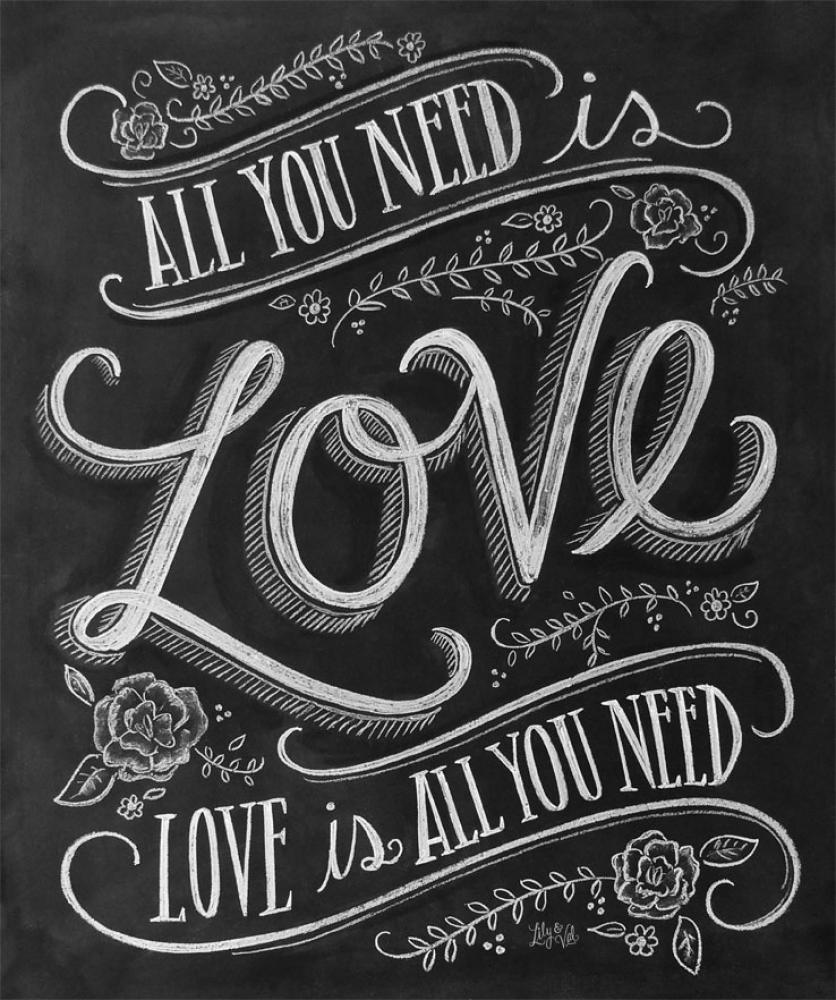 ALL YOU NEED is
LOVE
LOVE is ALL YOU NEED
Lily &
Val